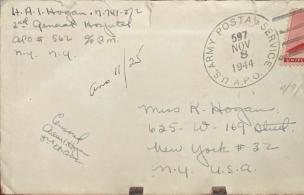 H.A.I. Hogan - N-741-272
2nd General Hospital
APO # 562 % P.M.
N.Y. N.Y.
ans 11/25
U.S. ARMY POSTAL SERVICE
597
NOV
8
1944
A.P.O.
Miss K. Hogan
625- W- 169 Street
New York # 32
N.Y. U.S.A.
Censored